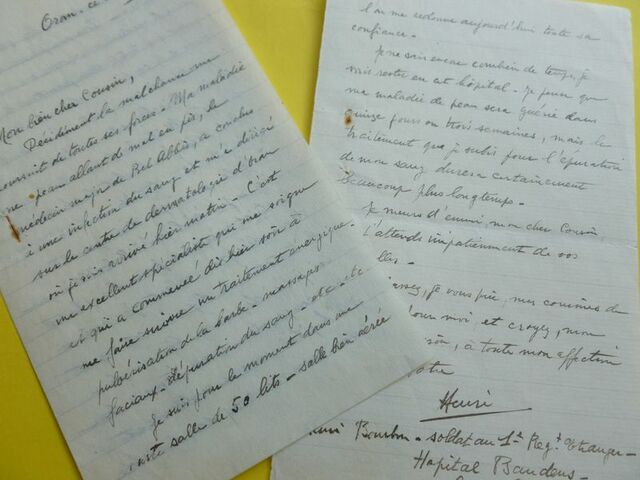 Oran, ce
Mon bien cher Cousin,
Décidément la malchance me
poursuit de toutes ses forces. Ma maladie
de peau allant de mal en pis, le
médecin major de Bel Abbès, a conclu
à une infection du sang et m'a dirigé
sur le centre de dermatologie d'Oran
où je suis arrivé hier matin. C'est
un excellent spécialiste qui me soigne
et qui a commencé dès hier soir à
me faire suivre un traitement énergique.
pulvérisation de la barbe - massages
faciaux - dépuration du sang - etc - etc
Je suis pour le moment dans une
vaste salle de 50 lits - salle bien aérée
l'on me redonne aujourd'hui toute sa
confiance.
Je ne sais encore combien de temps, je
vais rester en cet hôpital - Je pense que
ma maladie de peau sera guérie dans
quinze jours ou trois semaines, mais le
traitement que je subis pour l'épuration
de mon sang durera certainement
beaucoup plus longtemps.
Je meurs d'ennui, mon cher Cousin
J'attends impatiemment de vos
lles -
je vous prie, mes cousines de
pour moi, et croyez, mon
à toute mon affection
Henri
Bourbon - soldat au 1er Regt Etranger -
Hôpital Baudens -